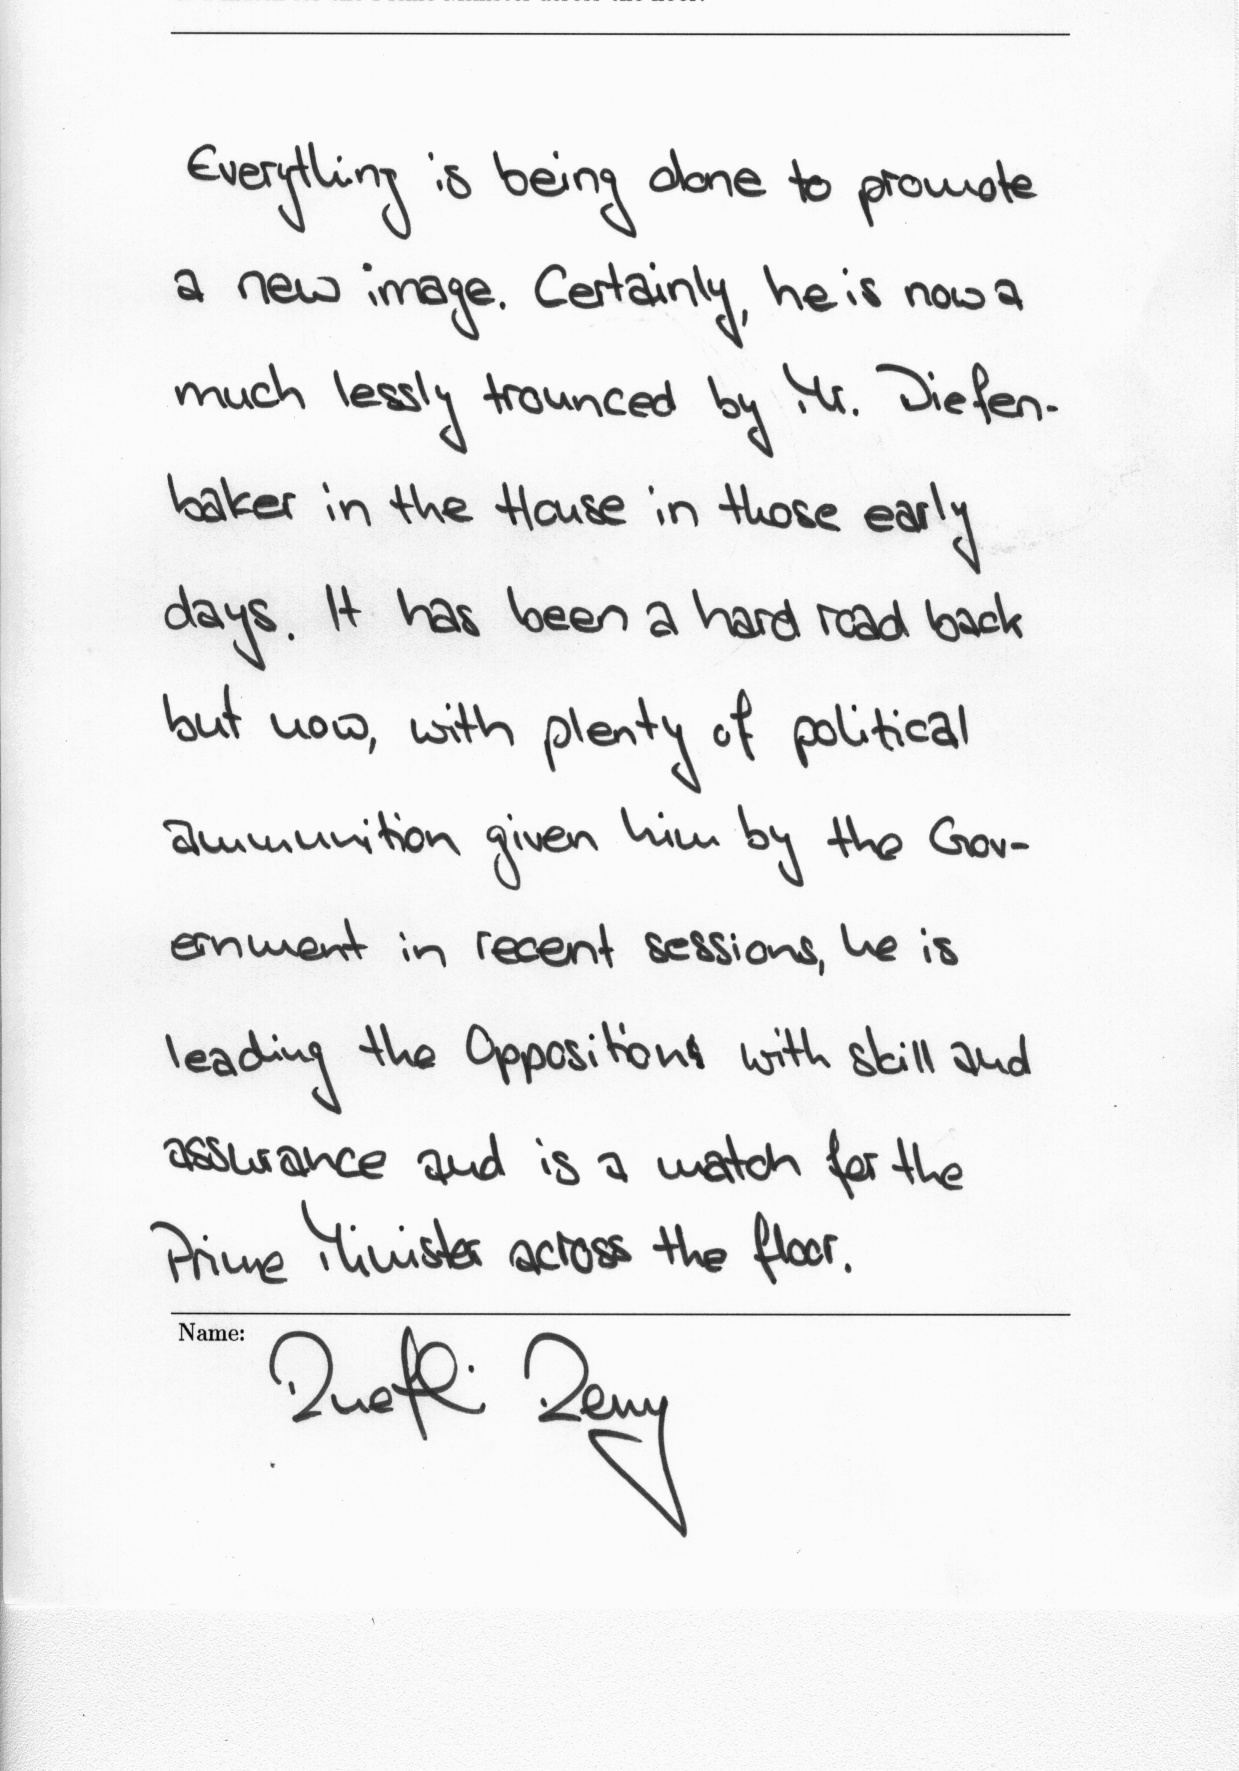 Everything is being done to promote
a new image. Certainly, he is now a
much lessly trounced by Mr. Diefen-
baker in the House in those early
days. It has been a hard road back
but now, with plenty of political
ammunition given him by the Gov-
ernment in recent sessions, he is
leading the Oppositions with skill and
assurance and is a match for the
Prime Minister across the floor.
Name: